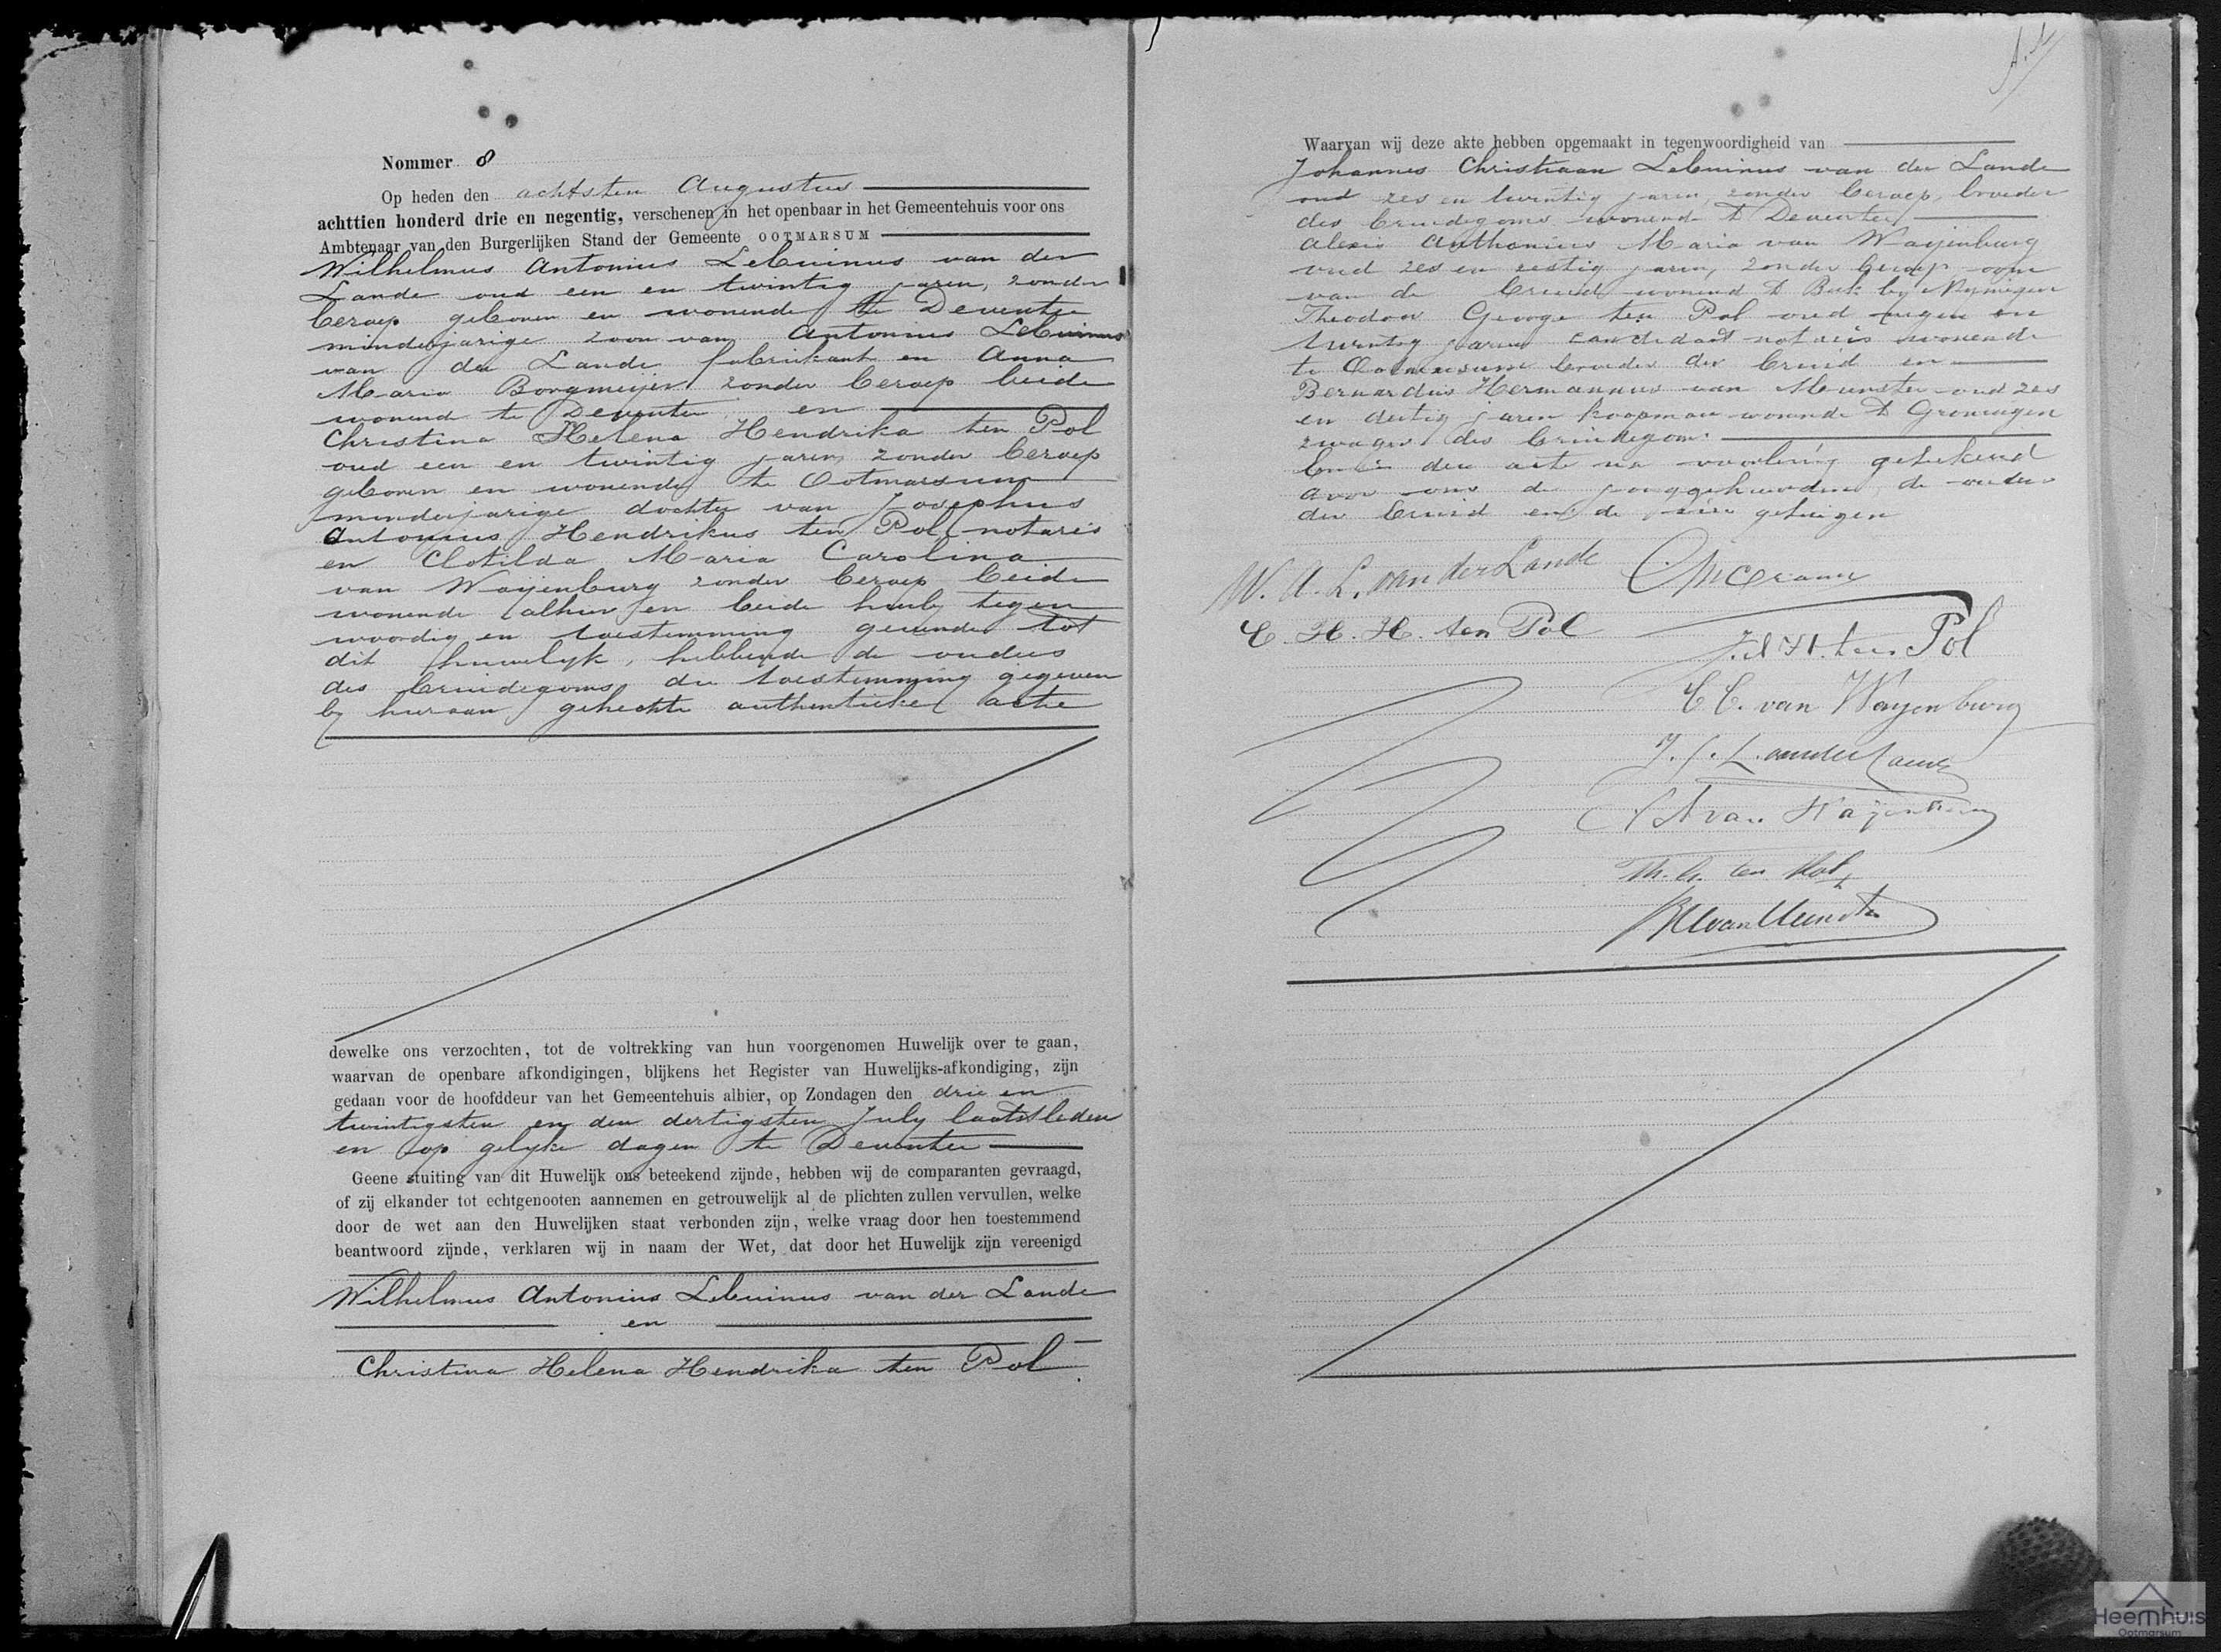 Nommer 8
Op heden den achtsten Augustus
achttien honderd drie en negentig, verschenen in het openbaar in het Gemeentehuis voor ons
Ambtenaar van den Burgerlijken Stand der Gemeente OOTMARSUM
Wilhelmus Antonius Lebuinus van der
Lande oud een en twintig jaren, zonder
beroep geboren en wonende te Deventer
minderjarige zoon van Antonius Lebuinus
van der Lande fabrikant en Anna
Maria Borgmeijer zonder beroep beide
wonend te Deventer en
Christina Helena Hendrika ten Pol
oud een en twintig jaren zonder beroep
geboren en wonende te Ootmarsum
minderjarige dochter van Josephus
Antonius Hendrikus ten Pol notaris
en Clotilda Maria Carolina
van Waijenburg zonder beroep beide
wonende alhier en beide hierbij tegen
woordig en toestemming gevende tot
dit huwelijk, hebbende de ouders
des bruidegoms, die toestemming gegeven
bij hieraan gehechte authentieke acte
dewelke ons verzochten, tot de voltrekking van hun voorgenomen Huwelijk over te gaan,
waarvan de openbare afkondigingen, blijkens het Register van Huwelijks-afkondiging, zijn
gedaan voor de hoofddeur van het Gemeentehuis alhier, op Zondagen den drie en
twintigsten en den dertigsten July laatstleden
en op gelijke dagen te Deventer
Geene stuiting van dit Huwelijk ons beteekend zijnde, hebben wij de comparanten gevraagd,
of zij elkander tot echtgenooten aannemen en getrouwelijk al de plichten zullen vervullen, welke
door de wet aan den Huwelijken staat verbonden zijn, welke vraag door hen toestemmend
beantwoord zijnde, verklaren wij in naam der Wet, dat door het Huwelijk zijn vereenigd
Wilhelmus Antonius Lebuinus van der Lande
en
Christina Helena Hendrika ten Pol
Waarvan wij deze akte hebben opgemaakt in tegenwoordigheid van
Johannes Christiaan Lebuinus van der Lande
oud zes en twintig jaren, zonder beroep, broeder
des bruidegoms wonende te Deventer
Alexis Anthonius Maria van Waijenburg
oud zes en zestig jaren, zonder beroep oom
van de bruid wonend te Beek bij Nijmegen
Theodoor George ten Pol oud negen en
twintig jaren candidaat notaris wonende
te Ootmarsum broeder der bruid en
Bernardus Hermannus van Munster oud zes
en dertig jaren koopman wonende te Groningen
zwager des bruidegoms
En is deze acte na voorlezing geteekend
door ons de jonggehuwden, de ouders
der bruid en de vier getuigen
W. A. L. van der Lande
C. H. H. ten Pol
J. A. H. ten Pol
C C. van Wayenburg
J. C. L. van der Lande
A A van Wayenburg
Th. G. ten Pol
B H van Munster
Heemhuis
Ootmarsum